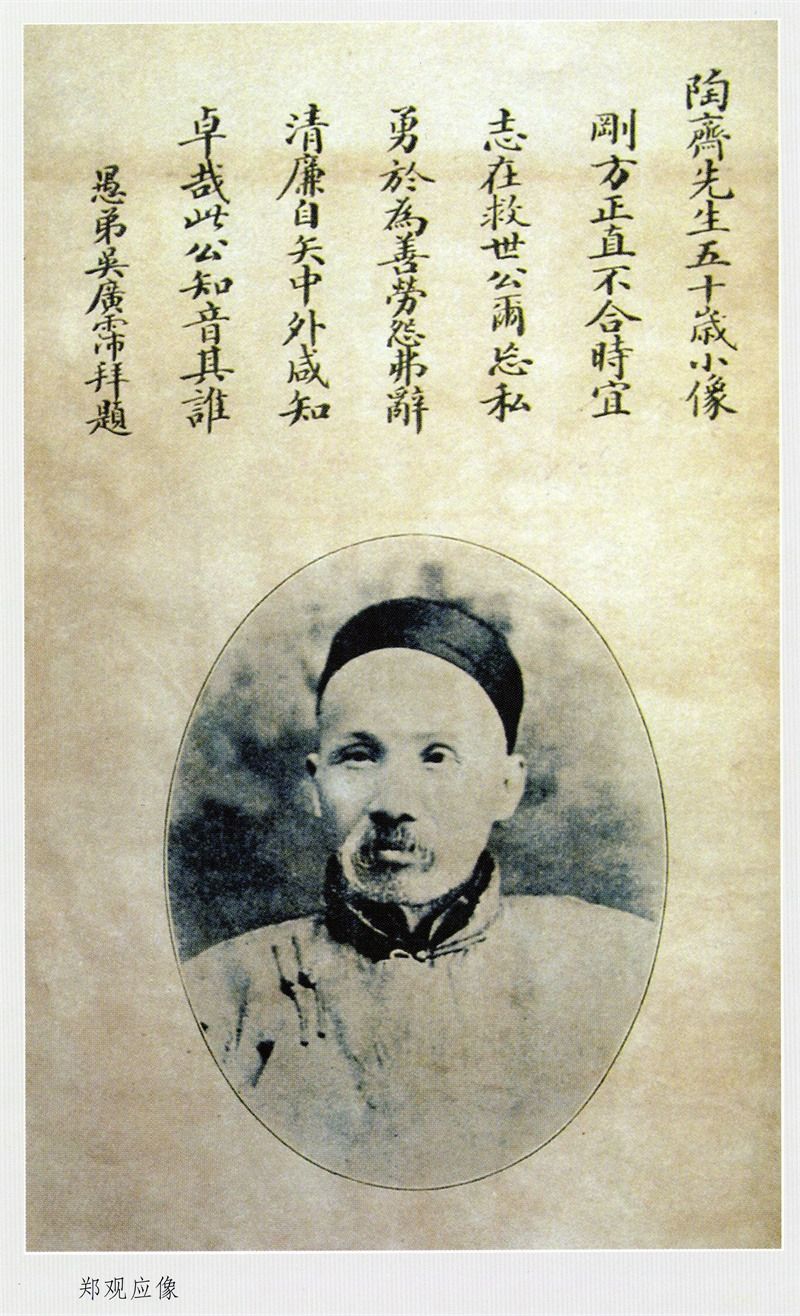 陶齋先生五十歲小像
剛方正直不合時宜
志在救世公爾忘私
勇於為善勞怨弗辭
清廉自矢中外咸知
卓哉此公知音其誰
愚弟吳廣霈拜題
郑观应像